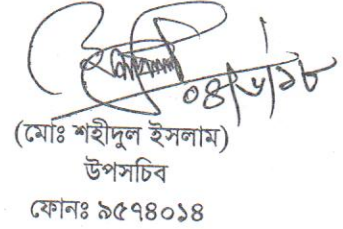 ০৪/৬/১৮
(মোঃ শহীদুল ইসলাম)
উপসচিব
ফোনঃ ৯৫৭৪০১৪